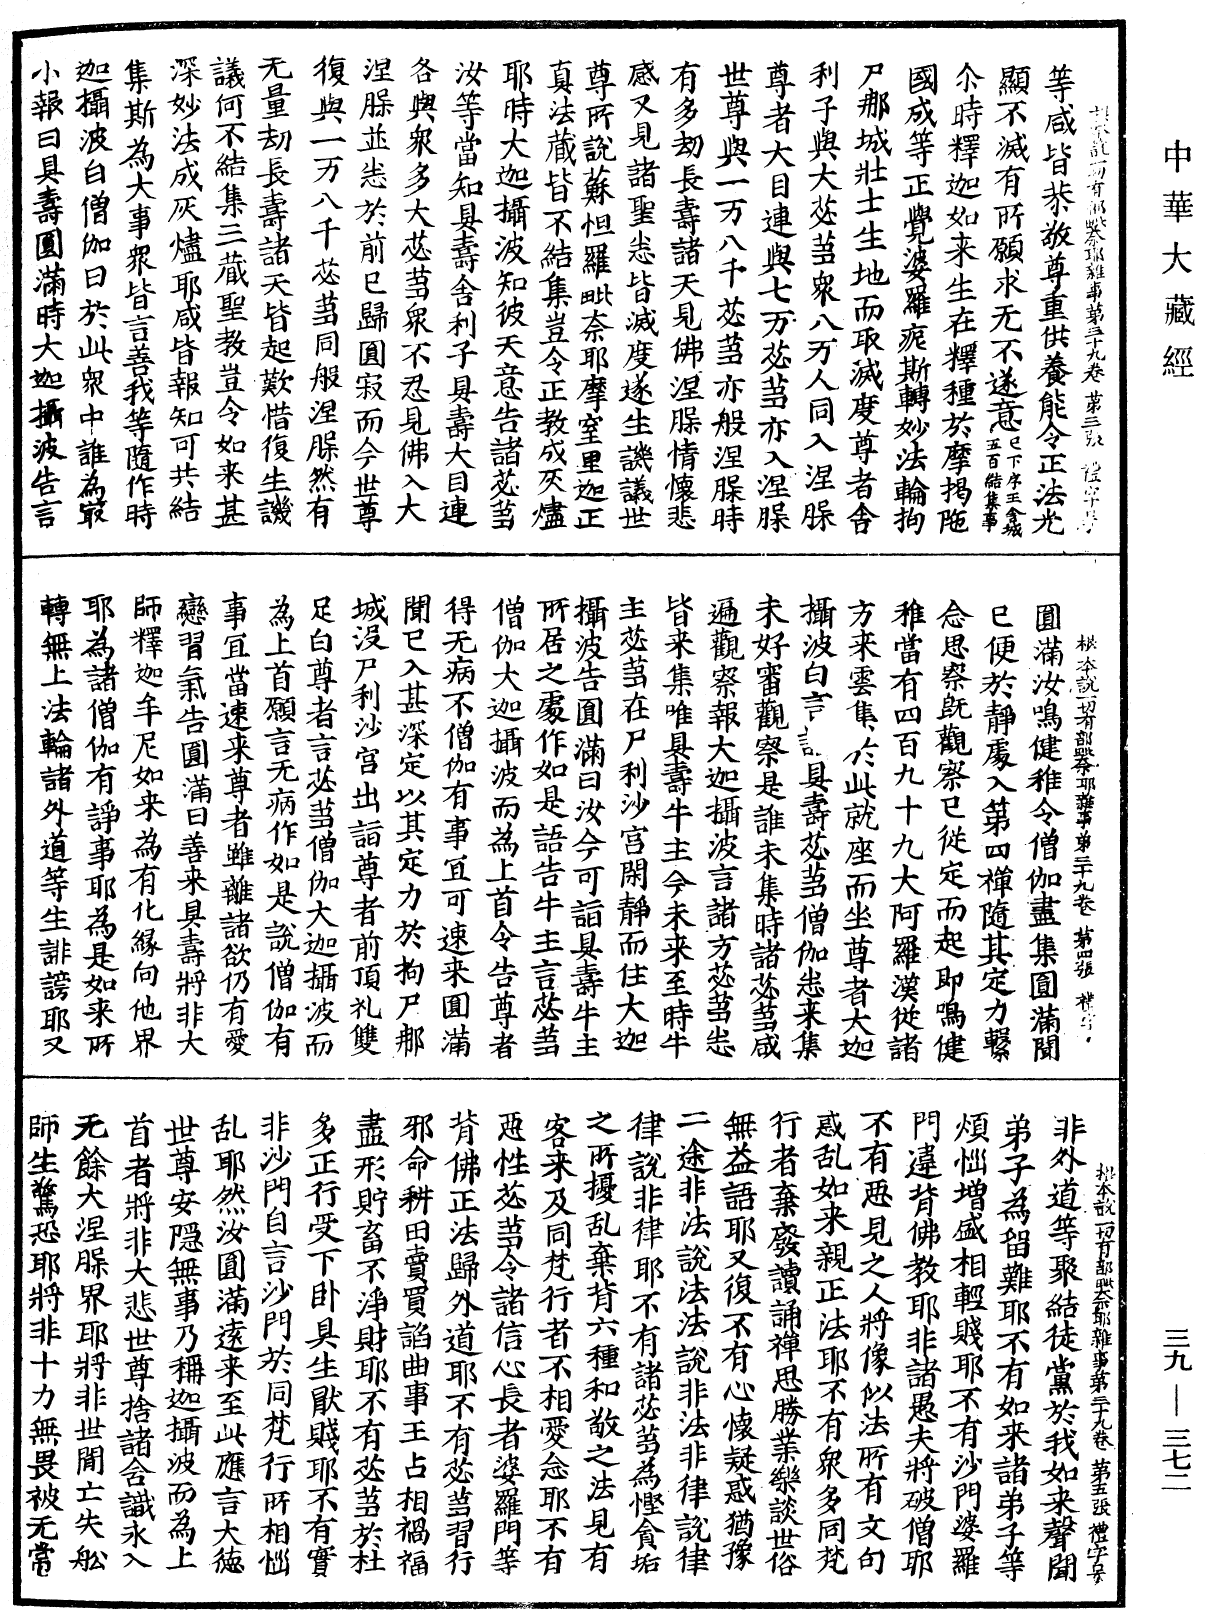 中華大藏經
三九—三七二
根本說一切有部毗奈耶雜事第三十九卷 第三張 禮字号
等咸皆恭敬尊重供養能令正法光
顯不滅有所願求无不遂意已下序王舍城五百結集事
尒時釋迦如来生在釋種於摩揭陁
國成等正覺婆羅痆斯轉妙法輪拘
尸那城壯士生地而取滅度尊者舍
利子與大苾芻衆八万人同入涅槃
尊者大目連與七万苾芻亦入涅槃
世尊與一万八千苾芻亦般涅槃時
有多劫長壽諸天見佛涅槃情懷悲
感又見諸聖悉皆滅度遂生譏議世
尊所說蘇怛羅毗奈耶摩窒里迦正
真法藏皆不結集豈令正教成灰燼
耶時大迦攝波知彼天意告諸苾芻
汝等當知具壽舍利子具壽大目連
各與衆多大苾芻衆不忍見佛入大
涅槃並悉於前已歸圓寂而今世尊
復與一万八千苾芻同般涅槃然有
无量劫長壽諸天皆起歎惜復生譏
議何不結集三藏聖教豈令如来甚
深妙法成灰燼耶咸皆報知可共結
集斯為大事衆皆言善我等隨作時
迦攝波白僧伽曰於此衆中誰為㝡
小報曰具壽圓滿時大迦攝波告言
根本說一切有部毗奈耶雜事第三十九卷 第四張 禮字
圓滿汝鳴健稚令僧伽盡集圓滿聞
已便於靜處入第四禪隨其定力繫
念思察既觀察已從定而起即鳴健
稚當有四百九十九大阿羅漢從諸
方来雲集於此就座而坐尊者大迦
攝波白言諸具壽苾芻僧伽悉来集
未好審觀察是誰未集時諸苾芻咸
遍觀察報大迦攝波言諸方苾芻悉
皆来集唯具壽牛主今未来至時牛
主苾芻在尸利沙宫閑靜而住大迦
攝波告圓滿曰汝今可詣具壽牛主
所居之處作如是語告牛主言苾芻
僧伽大迦攝波而為上首令告尊者
得无病不僧伽有事宜可速来圓滿
聞已入甚深定以其定力於拘尸那
城没尸利沙宫出詣尊者前頂礼雙
足白尊者言苾芻僧伽大迦攝波而
為上首願言无病作如是說僧伽有
事宜當速来尊者雖離諸欲仍有愛
戀習氣告圓滿曰善来具壽將非大
師釋迦牟尼如来為有化緣向他界
耶為諸僧伽有諍事耶為是如来所
轉無上法輪諸外道等生誹謗耶又
根本說一切有部毗奈耶雜事第三十九卷 第五張 禮字号
非外道等聚結徒黨於我如来聲聞
弟子為留難耶不有如来諸弟子等
煩惱增盛相輕賤耶不有沙門婆羅
門違背佛教耶非諸愚夫將破僧耶
不有惡見之人將像似法所有文句
惑乱如来親正法耶不有衆多同梵
行者棄廢讀誦禪思勝業樂談世俗
無益語耶又復不有心懷疑惑猶豫
二途非法說法法說非法非律說律
律說非律耶不有諸苾芻為慳貪垢
之所擾乱棄背六種和敬之法見有
客来及同梵行者不相愛念耶不有
惡性苾芻令諸信心長者婆羅門等
背佛正法歸外道耶不有苾芻習行
邪命耕田賣買諂曲事王占相禍福
盡形貯畜不淨財耶不有苾芻於杜
多正行受下卧具生猒賤耶不有實
非沙門自言沙門於同梵行所相惱
乱耶然汝圓滿遠来至此應言大德
世尊安隐無事乃稱迦攝波而為上
首者將非大悲世尊捨諸含識永入
无餘大涅槃界耶將非世閒亡失舩
師生驚恐耶將非十力無畏被无常